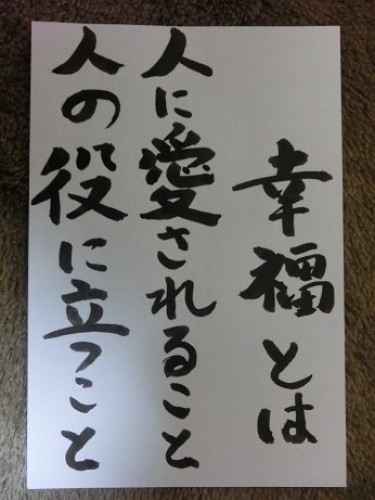 幸福とは
人に愛されること
人の役に立つこと